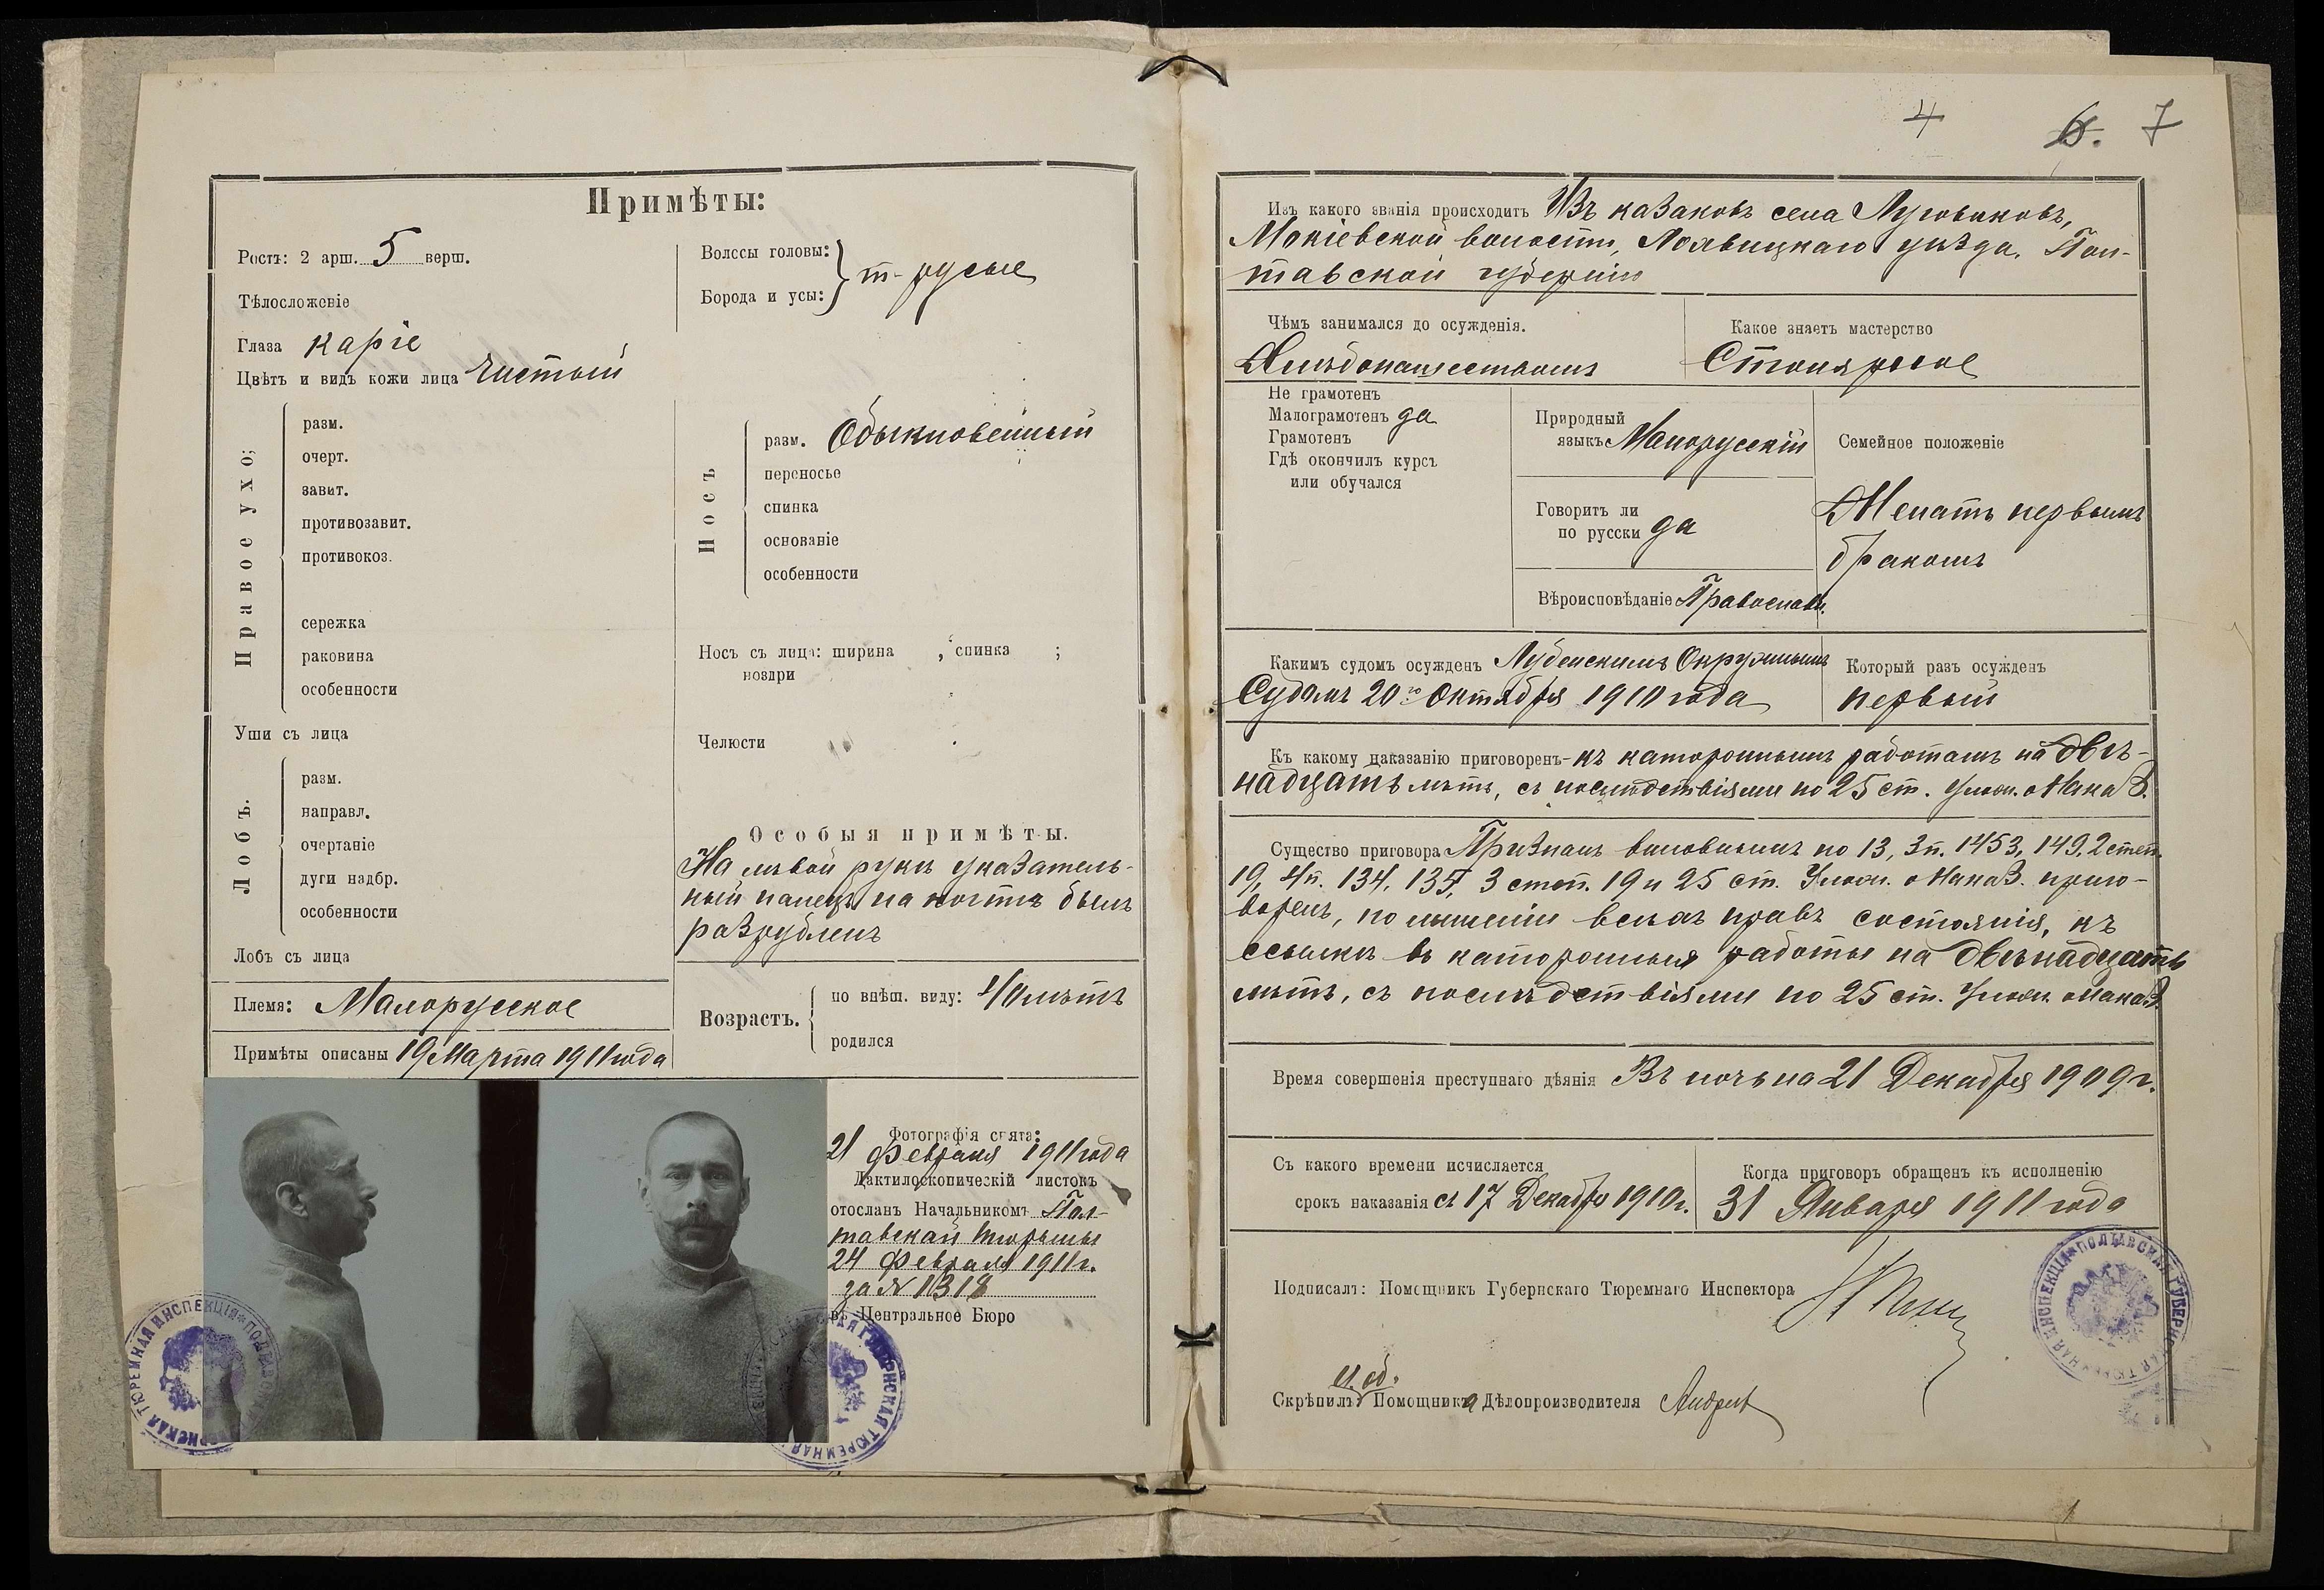 Примѣты:
Ростъ: 2 арш. 5 верш.
Тѣлосложеніе
Глаза каріе
Цвѣтъ и видъ кожи лица чистый
Волосы головы:
Борода и усы:
т-русые
Правое ухо:
разм.
очерт.
завит.
противозавит.
противокоз.
сережка
раковина
особенности
Носъ
разм. Обыкновенный
переносье
спинка
основаніе
особенности
Носъ съ лица: ширина , спинка ;
ноздри
Уши съ лица
Челюсти
Лобъ.
разм.
направл.
очертаніе
дуги надбр.
особенности
Лобъ съ лица
Особыя примѣты.
На лѣвой рукѣ указатель-
ный палецъ на ногтѣ былъ
разрубленъ
Племя: Малорусское
Примѣты описаны 19 Марта 1911 года
Возрастъ.
по внѣш. виду: 40 лѣтъ
родился
Фотографія снята:
21 Февраля 1911 года
Дактилоскопическій листокъ
отосланъ Начальникомъ Пол-
тавской тюрьмы
24 Февраля 1911 г.
за № 1318
въ Центральное Бюро
4 6. 7
Изъ какого званія происходитъ Изъ казаковъ села Луговиковъ,
Мокіевской волости, Лохвицкаго уѣзда, Пол-
тавской губерніи
Чѣмъ занимался до осужденія.
Хлѣбопашествомъ
Какое знаетъ мастерство
Столярное
Не грамотенъ
Малограмотенъ да
Грамотенъ
Гдѣ окончилъ курсъ
или обучался
Природный
языкъ Малорусскій
Говоритъ ли
по русски да
Вѣроисповѣданіе Православн.
Семейное положеніе
Женатъ первымъ
бракомъ
Какимъ судомъ осужденъ Лубенскимъ Окружнымъ
Судомъ 20го Октября 1910 года
Который разъ осужденъ
первый
Къ какому наказанію приговоренъ - къ каторжнымъ работамъ на двѣ-
надцать лѣтъ, съ послѣдствіями по 25 ст. Улож. о Наказ.
Существо приговора Признанъ виновнымъ по 13, 3 п. 1453, 149, 2 степ.
19, 4 п. 134, 135, 3 степ. 19 и 25 ст. Улож. о Наказ. приго-
воренъ, по лишеніи всѣхъ правъ состоянія, къ
ссылкѣ въ каторжныя работы на двѣнадцать
лѣтъ, съ послѣдствіями по 25 ст. Улож. о Наказ.
Время совершенія преступнаго дѣянія Въ ночь на 21 Декабря 1909 г.
Съ какого времени исчисляется
срокъ наказанія съ 17 Декабря 1910 г.
Когда приговоръ обращенъ къ исполненію
31 Января 1911 года
Подписалъ: Помощникъ Губернскаго Тюремнаго Инспектора
и. об.
Скрѣпилъ: Помощника Дѣлопроизводителя
ПОЛТАВСКАЯ ГУБЕРНСКАЯ ТЮРЕМНАЯ ИНСПЕКЦІЯ
ПОЛТАВСКАЯ ГУБЕРНСКАЯ ТЮРЕМНАЯ ИНСПЕКЦІЯ
ПОЛТАВСКАЯ ГУБЕРНСКАЯ ТЮРЕМНАЯ ИНСПЕКЦІЯ